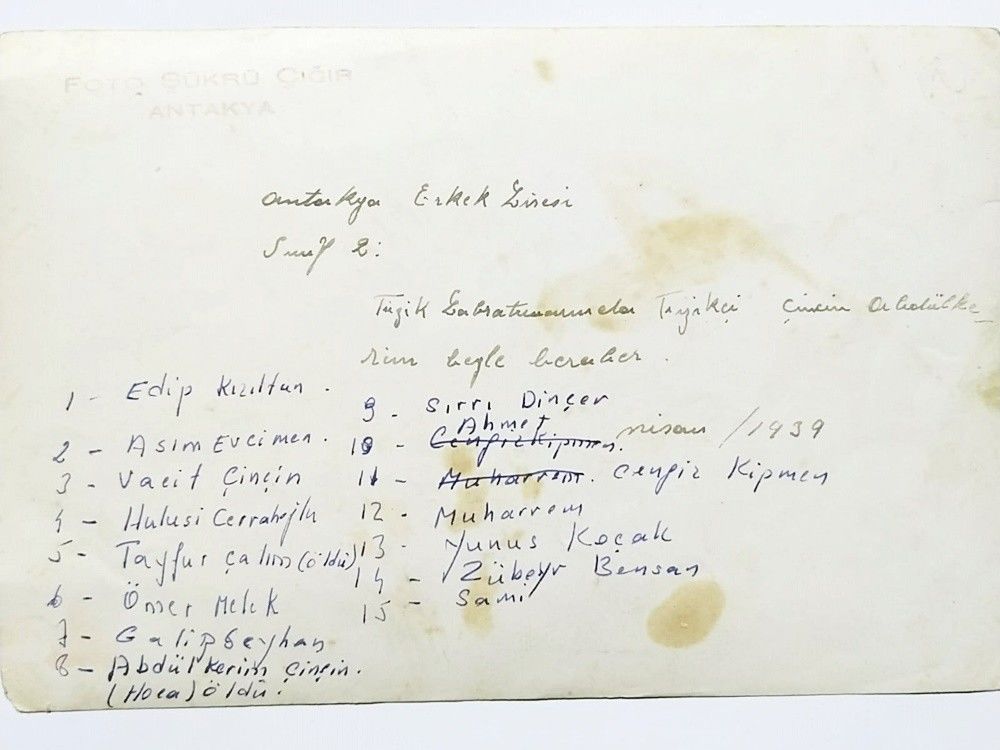 FOTO ŞÜKRÜ ÇIĞIR
ANTAKYA
Antakya Erkek Lisesi
Sınıf 2:
Fizik Labratuvarında Fizikçi Çinçin Abdülke-
rim beyle beraber.
nisan /1939
1 - Edip Kızıltan.
2 - Asım Evcimen.
3 - Vacit Çinçin
4 - Hulusi Cerrahoğlu
5 - Tayfur Çalım (öldü)
6 - Ömer Melek
7 - Galip Seyhan
8 - Abdülkerim Çinçin.
(Hoca) öldü.
9 - Sırrı Dinçer
10 - Cengiz Kipmen. Ahmet
11 - Muharrem. Cengiz Kipmen
12 - Muharrem
13 - Yunus Koçak
14 - Zübeyr Bensan
15 - Sami